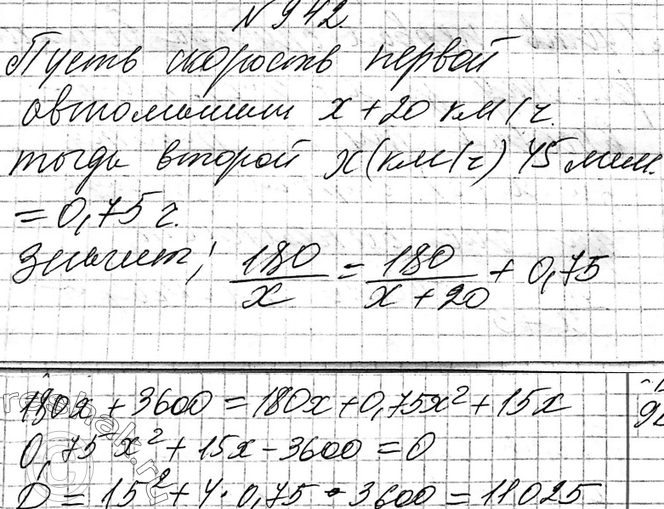 №942
Пусть скорость первой
автомашины x+20 км/ч.
тогда второй x(км/ч) 45 мин.
=0,75 ч.
Значит; 180/x = 180/(x+20) + 0,75
180x + 3600 = 180x + 0,75x² + 15x
0,75x² + 15x - 3600 = 0
D = 15² + 4 · 0,75 · 3600 = 11025